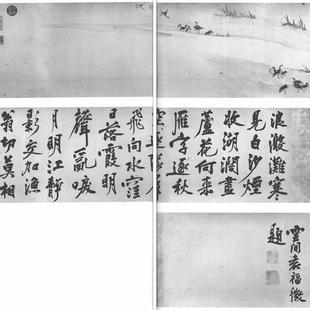 浪激灘寒
見白沙煙
收湖濶盡
蘆花何来
雁字逐秋
飛向水窪
日落霞明
聲亂喚
月明江靜
影交加漁
翁切莫相
雲間袁福徵
題